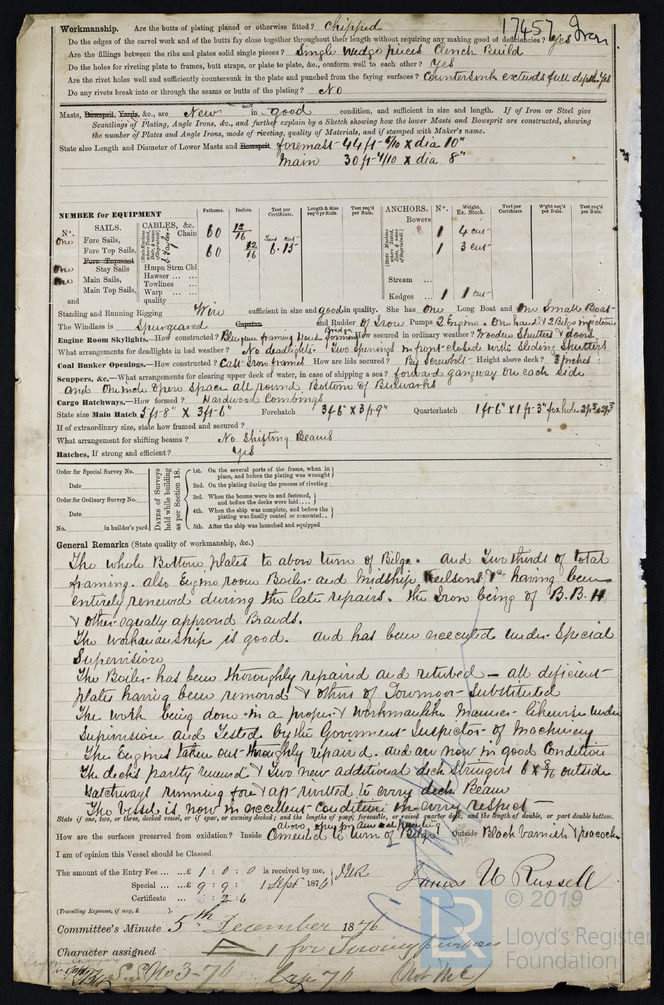 17457 Iron
Workmanship. Are the butts of plating planed or otherwise fitted? Chipped
Do the edges of the carvel work and of the butts fay close together throughout their length without requiring any making good of deficiencies? Yes
Are the fillings between the ribs and plates solid single pieces? Single Wedge pieces Clench Build
Do the holes for riveting plate to frames, butt straps, or plate to plate, &c., conform well to each other? Yes
Are the rivet holes well and sufficiently countersunk in the plate and punched from the faying surfaces? Countersink extends full depth Yes
Do any rivets break into or through the seams or butts of the plating? No
Masts, Bowsprit, Yards, &c., are New in good condition, and sufficient in size and length. If of Iron or Steel give
Scantlings of Plating, Angle Irons, &c., and further explain by a Sketch showing how the lower Masts and Bowsprit are constructed, showing
the number of Plates and Angle Irons, mode of riveting, quality of Materials, and if stamped with Maker's name.
State also Length and Diameter of Lower Masts and Bowsprit foremast 44 ft 6/10 x dia 10"
Main 30 ft 4/10 x dia 8"
NUMBER for EQUIPMENT
Nº. SAILS. CABLES, &c. Fathoms. Inches. Test per Certificate. Length & Size req'd pr Rule. Test req'd per Rule. ANCHORS. Nº. Weight. Ex. Stock. Test per Certificate. W'ght req'd per Rule. Test req'd per Rule.
one Fore Sails, Chain 60 12/16 Bowers 1 4 cwt
Fore Top Sails, 60 12/16 8.15 1 3 cwt
Fore Topmast
one Stay Sails Hmpn Strm Cbl
one Main Sails, Hawser Stream
Main Top Sails, Towlines
Warp Kedges 1 1 cwt
and quality
Standing and Running Rigging Wire sufficient in size and good in quality. She has one Long Boat and One Small Boat
The Windlass is Spurgeared Capstan and Rudder of Iron Pumps 2 Engine. One hand & 2 Bilge injections
Engine Room Skylights.—How constructed? How secured in ordinary weather? Wooden Shutters & doors
What arrangements for deadlights in bad weather? No deadlights. Two openings in front closed with Sliding Shutters
Coal Bunker Openings.—How constructed? Cast Iron frames How are lids secured? By screwbolt Height above deck? 3 inches
Scuppers, &c.—What arrangements for clearing upper deck of water, in case of shipping a sea? forward gangway on each side
and one inch open space all round Bottom of Bulwarks
Cargo Hatchways.—How formed? Hardwood Combings
State size Main Hatch 5 ft 8" x 3 ft 6" Forehatch 3 ft 6" x 3 ft 9" Quarterhatch 1 ft 6" x 1 ft 3"
If of extraordinary size, state how framed and secured?
What arrangement for shifting beams? No Shifting Beams
Hatches, If strong and efficient? Yes
Order for Special Survey No.
Date
Order for Ordinary Survey No.
Date
No. in builder's yard.
DATES of Surveys held while building as per Section 18.
1st. On the several parts of the frame, when in place, and before the plating was wrought
2nd. On the plating during the process of riveting
3rd. When the beams were in and fastened, and before the decks were laid
4th. When the ship was complete, and before the plating was finally coated or cemented
5th. After the ship was launched and equipped
General Remarks (State quality of workmanship, &c.)
The whole Bottom plates to above turn of Bilge. and Two thirds of total
framing. also Engine room Boiler and Midship Keelsons &c having been
entirely renewed during the late repairs. the Iron being of B.B.H
& other equally approved Brands.
The workmanship is good. and has been executed under Special
Supervision
The Boiler has been thoroughly repaired and retubed — all deficient
plates having been removed & others of Lowmoor substituted
The work being done in a proper & workmanlike Manner likewise under
Supervision and Tested by the Government Inspector of Machinery
The Engines taken out thoroughly repaired. and are now in good Condition
The decks partly renewed & Two new additional deck Stringers 6 x 8/16 outside
Hatchways running fore & aft rivitted to every deck Beam
The Vessel is now in excellent Condition in every respect —
State if one, two, or three, decked vessel, or if spar, or awning decked; and the lengths of poop, forecastle, or raised quarter deck, and the length of double, or part double bottom.
How are the surfaces preserved from oxidation? Inside Cemented to turn of Bilge Outside Black varnish & peacock
I am of opinion this Vessel should be Classed
The amount of the Entry Fee ...£ 1 : 0 : 0 is received by me,
Special ...£ 9 : 9 : 1 Sept 1876
Certificate ... : 2 : 6 James N Russell
(Travelling Expenses, if any, £ ).
Committee's Minute 5th December 1876
Character assigned 1 for Towing purposes
S.S. No 3-76
LR © 2019
Lloyd's Register
Foundation